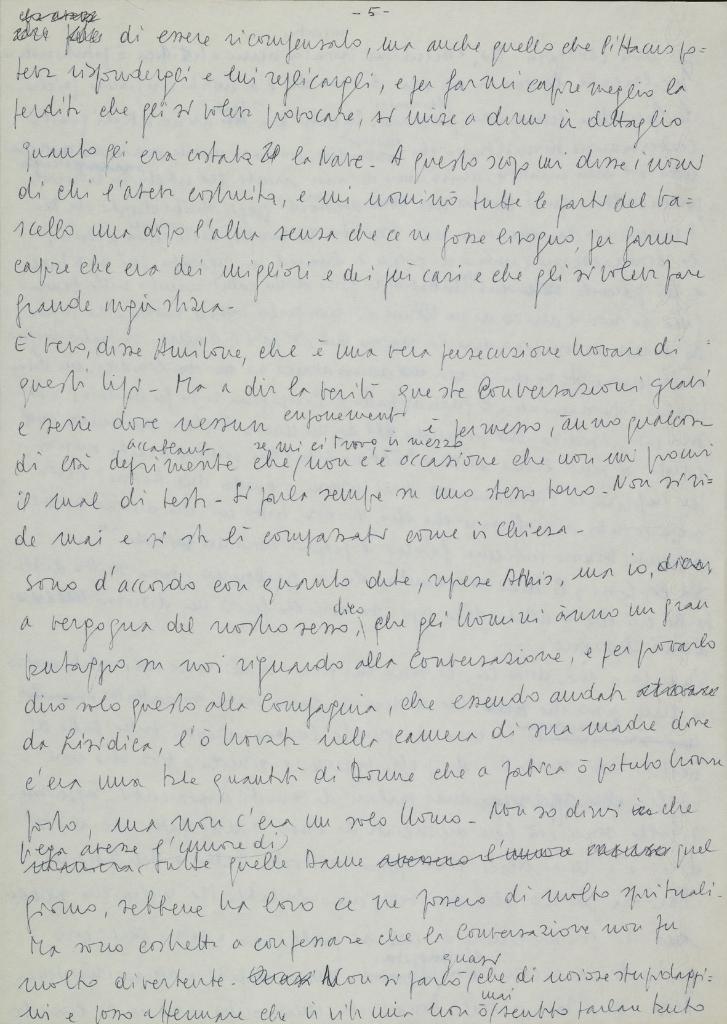 - 5 -
di essere ricompensato, ma anche quello che Pittacus po=
teva rispondergli e lui replicargli, e per farmi capire meglio la
perdita che gli si voleva provocare, si mise a dirmi in dettaglio
quanto gli era costata la Nave - A questo scopo mi disse i nomi
di chi l'aveva costruita, e mi nominò tutte le parti del va=
scello una dopo l'altra senza che ce ne fosse bisogno, per farmi
capire che era dei migliori e dei più cari e che gli si voleva fare
grande ingiustizia -
È vero, disse Amilone, che è una vera persecuzione trovare di
questi tipi - Ma a dir la verità queste Conversazioni gravi
e serie dove nessun enjouement è permesso, ànno qualcosa
accablant se mi ci trovo in mezzo
di così deprimente che / non c'è occasione che non mi provochi
il mal di testa - Si parla sempre su uno stesso tono - Non si ri=
de mai e si sta lì compassati come in Chiesa -
Sono d'accordo con quanto dite, riprese Athis, ma io,
dico
a vergogna del nostro sesso, che gli Uomini ànno un gran
vantaggio su noi riguardo alla Conversazione, e per provarlo
dirò solo questo alla Compagnia, che essendo andata
da Lisidica, l'ò trovata nella camera di sua madre dove
c'era una tale quantità di Donne che a fatica ò potuto trovare
posto, ma non c'era un solo Uomo - Non so dirvi che
piega avesse l'umore di
tutte quelle Dame quel
giorno, sebbene tra loro ce ne fossero di molto spirituali -
Ma sono costretta a confessare che la Conversazione non fu
quasi
molto divertente. Non si parlò / che di noiose stupidaggi=
mai
ni e posso affermare che in vita mia non ò / sentito parlare tanto